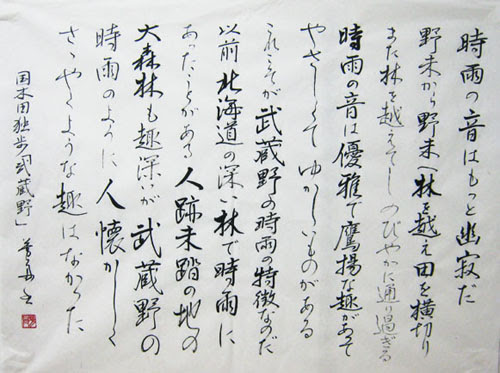 時雨の音はもっと幽寂だ
野末から野末へ林を越え田を横切り
また林を越えてしのびやかに通り過ぎる
時雨の音は優雅で鷹揚な趣があって
やさしくて ゆかしいものがある
これこそが武蔵野の時雨の特徴なのだ
以前北海道の深い林で時雨に
あったことがある人跡未踏の地の
大森林も趣深いが武蔵野の
時雨のように人懐かしく
さゝやくような趣はなかった
国木田独歩「武蔵野」